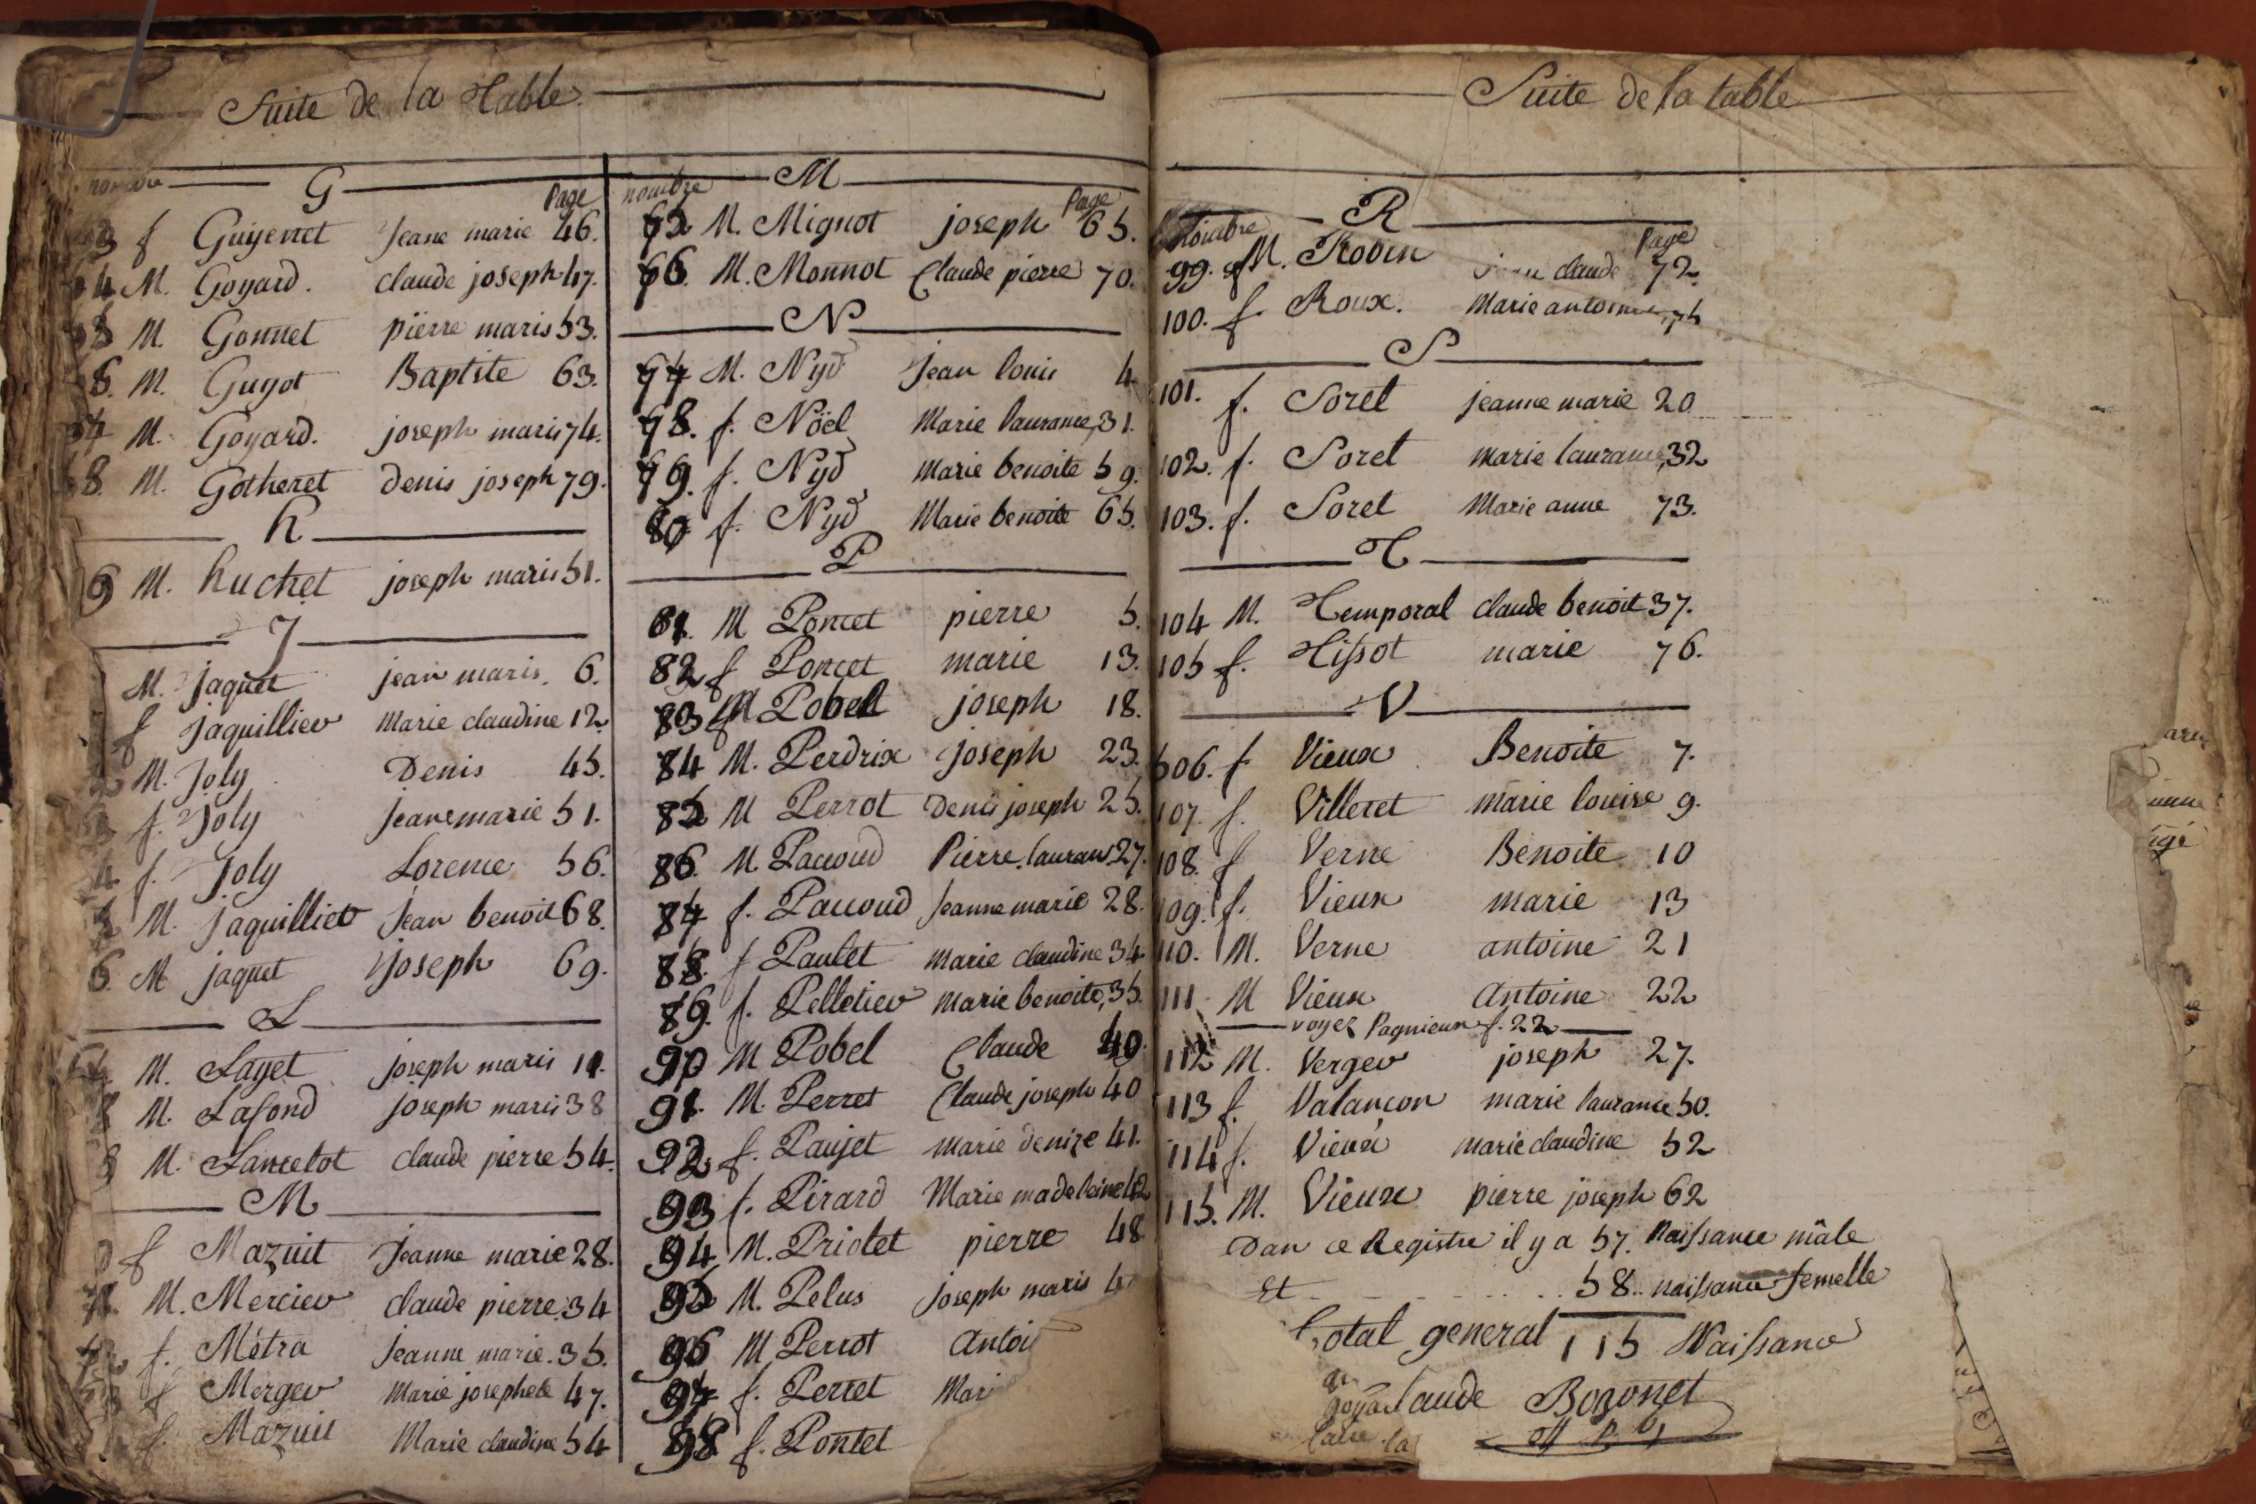 Suite de la Table
nombre G Page
f Guyenet Jeane marie 46.
M. Goyard. claude joseph 47.
M. Gonnet pierre maris 53.
M. Guyot Baptite 63.
M. Goyard. joseph maris 74.
M. Gotheret denis joseph 79.
h
M. huchet joseph maris 51.
J
M. jaquet jean maris 6.
f jaquillier marie claudine 12
M. Joly Denis 45.
f. Joly Jeane marie 51.
f. Joly Lorence 56.
M. jaquillier Jean benoit 68.
M jaquet joseph 69.
L
M. Layet joseph maris 11.
M. Lafond joseph maris 38
M. Lancelot claude pierre 54.
M
f Mazuit Jeanne marie 28.
M. Mercier claude pierre 34
f. Métra Jeanne marie. 35.
f Merger Marie josephete 47.
f. Mazuit Marie claudine 54
nombre M Page
M. Mignot joseph 65.
M. Monnot Claude pierre 70.
N
M. Nyd Jean louis 4
f. Nöel Marie laurance 31.
f. Nyd marie benoite 59.
f. Nyd Marie benoite 65.
P
81. M Poncet pierre 5.
82 f Poncet marie 13.
83 M Pobel joseph 18.
84 M. Perdrix joseph 23.
85 M Perrot Denis joseph 25.
86. M Paccoud Pierre lauran 27.
87 f. Paccoud Jeanne marie 28.
88. f Pautet marie claudine 34
89. f. Pelletier marie benoite 35.
90 M Pobel Claude 40.
91. M. Perret Claude joseph 40
92 f. Paujet marie denize 41.
93 f. Pirard Marie madeleine 42
94 M. Priolet pierre 48
95 M. Pelus joseph maris 4
96 M Perrot Antoi
97 f. Perret Mari
98 f. Pontet
Suite de la table
Nombre R Page
99. M. Robin claude 72.
100. f. Roux. Marie antoinne 75
S
101. f. Soret jeanne marie 20
102. f. Soret marie laurance 32
103. f. Soret Marie anne 73.
T
104 M. Temporal claude benoit 37.
105 f. Tissot marie 76.
V
106. f Vieux Benoite 7.
107. f. Villeret marie louise 9.
108. f Verne Benoite 10
109. f. Vieux marie 13
110. M. Verne antoine 21
111. M Vieux Antoine 22
voyez Pagnieux f. 22
112 M. Verger joseph 27.
113 f. Valançon marie laurance 50.
114 f. Vieux marie claudine 52
115. M. Vieux pierre joseph 62
Dan ce Registre il y a 57. Naissance mâle
Et 58. naissance femelle
total general 115 Naissance
laude Bozonet